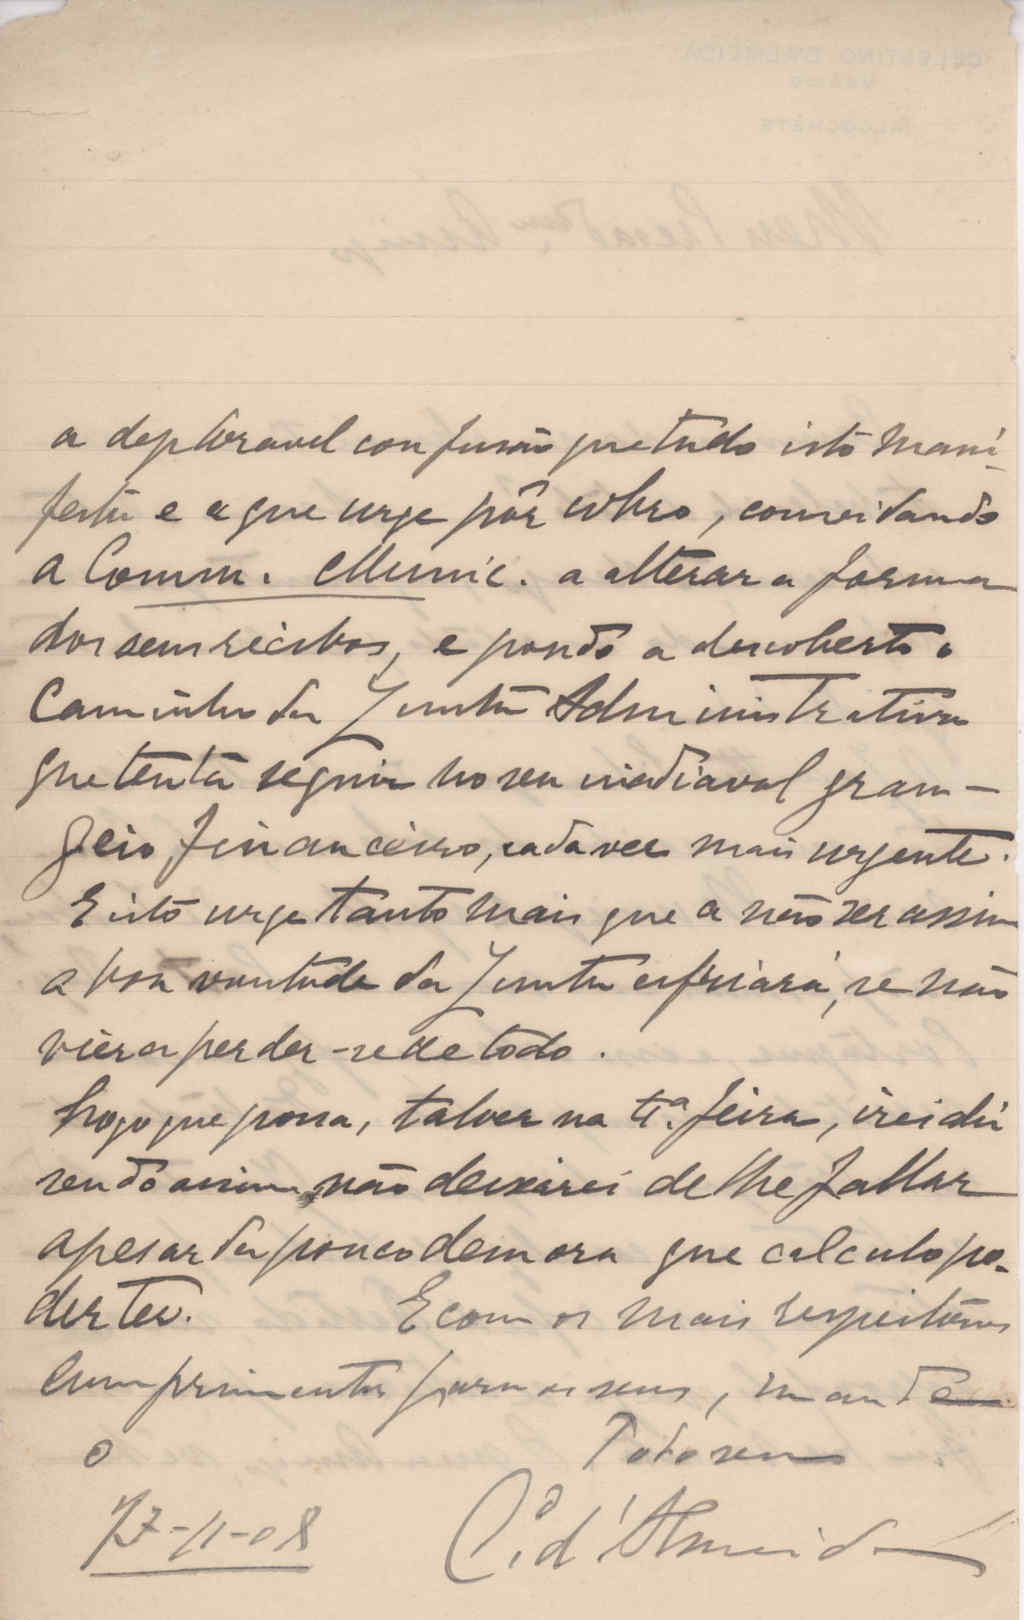 a deploravel confusão que tudo isto mani-
festa e a que urge pôr cobro, convidando
a Comm. Munic. a alterar a forma
dos seus recibos, e pondo a descoberto o
caminho da Junta Administrativa
que tenta seguir no seu mediaval gran-
geio financeiro, cada vez mais urgente.
E isto urge tanto mais que a não ser assim
a boa vontade da Junta esfriará, se não
vier a perder-se de todo.
Logo que possa, talvez na 4ª. feira, irei ahi
sendo assim não deixarei de lhe fallar
apesar da pouco demora que calculo po-
der ter. E com os mais respeitosos
cumprimentos para os seus, mande
o Todo seu
C.º d'Almeida
-11-08
CELESTINO D'ALMEIDA
ALCOCHETE
Meu Presad.mo Amigo